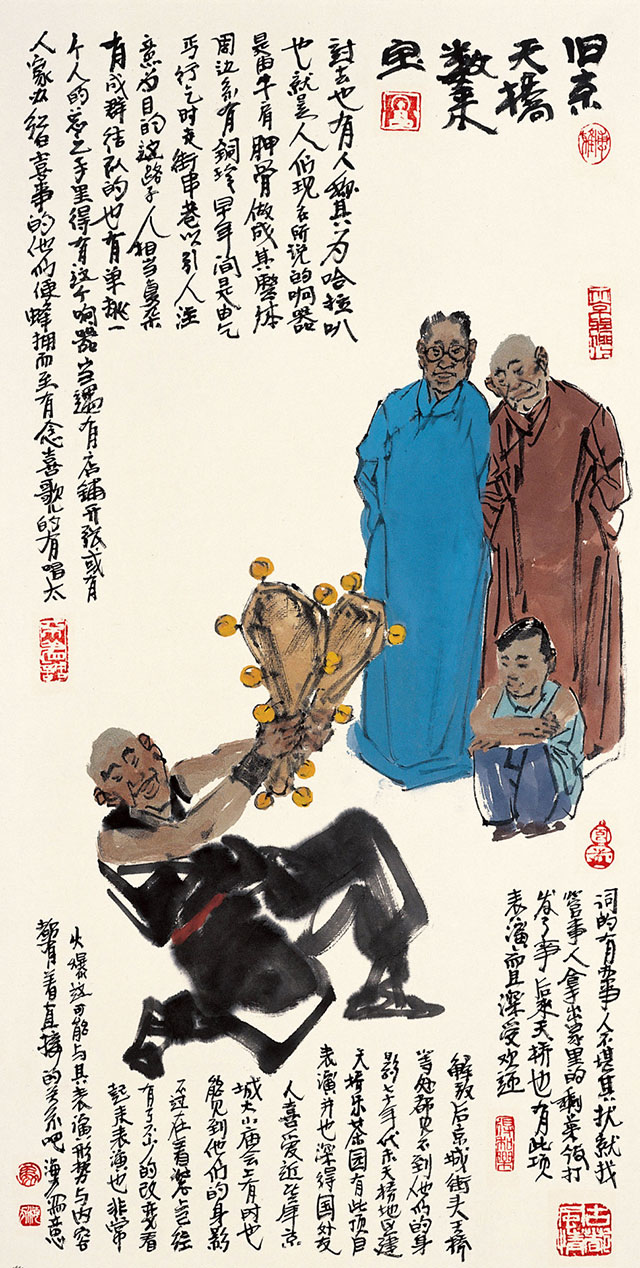 旧京
天橋
數来
宝
过去也有人称其为哈拉叭
也就是人们现在所说的响器
是由牛肩胛骨做成其整体
周边系有铜铃早年间是由乞
丐行乞时走街串巷以引人注
意为目的这路子人相当复杂
有成群结队的也有单挑一
个人的总之手里得有这个响器当遇有店铺开张或有
人家办红白喜事的他们便蜂拥而至有念喜歌儿的有唱太
词的有办事人不堪其扰就找
管事人拿出家里的剩菜饭打
发了事后来天桥也有此项
表演而且深受欢迎
解放后京城街头天桥
等处都见不到他们的身
影七十年代末天桥地区建
天桥乐茶园有此项目
表演并也深得国外友
人喜爱近些年京
城大小庙会上有时也
能见到他们的身影
不过在着装已经
有了不小的改变看
起来表演也非常
火爆这可能与其表演形势与内容
都有着直接的关系吧写意